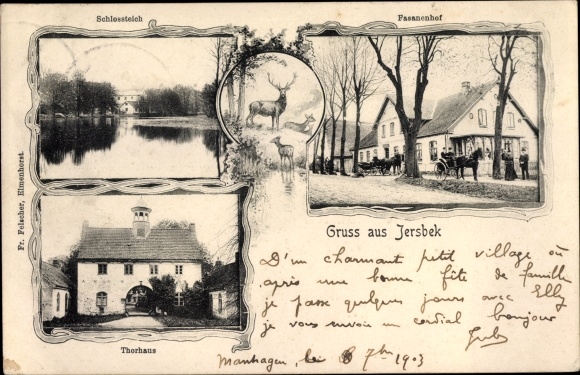 Schlossteich
Fasanenhof
Fr. Felscher, Elmenhorst.
Gruss aus Jersbek
D'un charmant petit village où
après une bonne fête de famille
je passe quelques jours avec Elly
je vous envoie un cordial bonjour
Thorhaus
Manhagen, 7br 1903